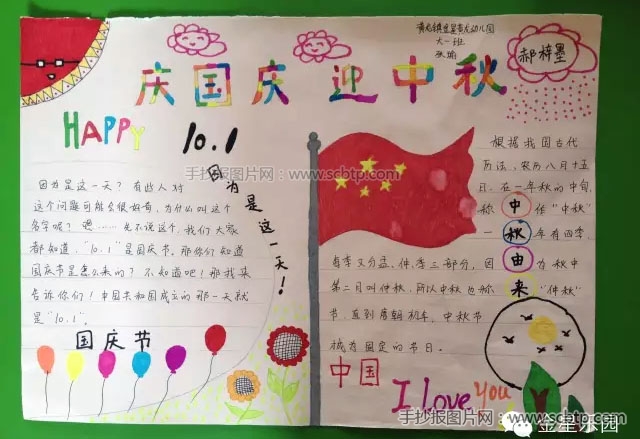 庆国庆 迎中秋
大一班
郝梓墨
HAPPY 10.1
因为是这一天!
因为是这一天?有些人对
这个问题可能会很好奇,为什么叫这个
名字呢?嗯……先不说这个,我们大家
都知道,"10.1"是国庆节。那你们知道
国庆节是怎么来的?不知道吧!那我来
告诉你们!中国共和国成立的那一天就
是"10.1"。
国庆节
根据我国古代
历法,农历八月十五
日,在一年秋的中旬,
称 中 作"中秋"
一 秋 年有四季,
每季又分孟、仲、季三部分,因 由 为秋中
第二月叫仲秋,所以中秋也称 来 "仲秋"
节,直到唐朝初年,中秋节
成为固定的节日。
中国
I love you
手抄报图片网·www.scbtp.com
手抄报图片网·www.scbtp.com
金星乐园